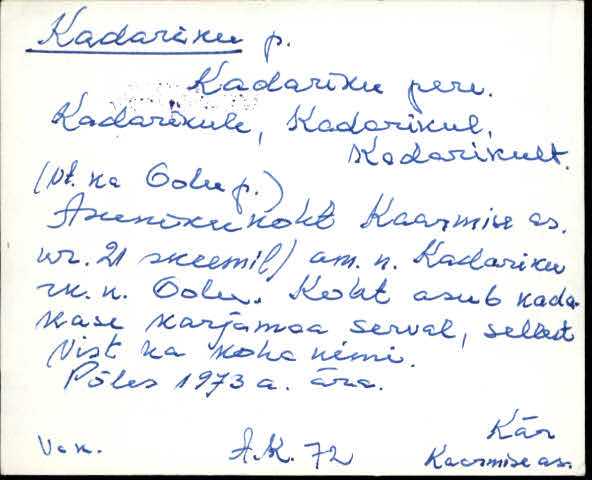 Kadariku p.
Kadariku pere.
Kadarikule, Kadarikul,
Kadarikult.
(Vt. ka Oolu p.)
Asunikukoht Kaarmise as.
nr. 21 skeemil) am. n. Kadariku
rk. n. Oolu. Koht asub kada-
kase karjamaa serval, sellest
vist ka koha nimi.
Põles 1973 a. ära.
Kär
A.K. 72
Kaarmise as.